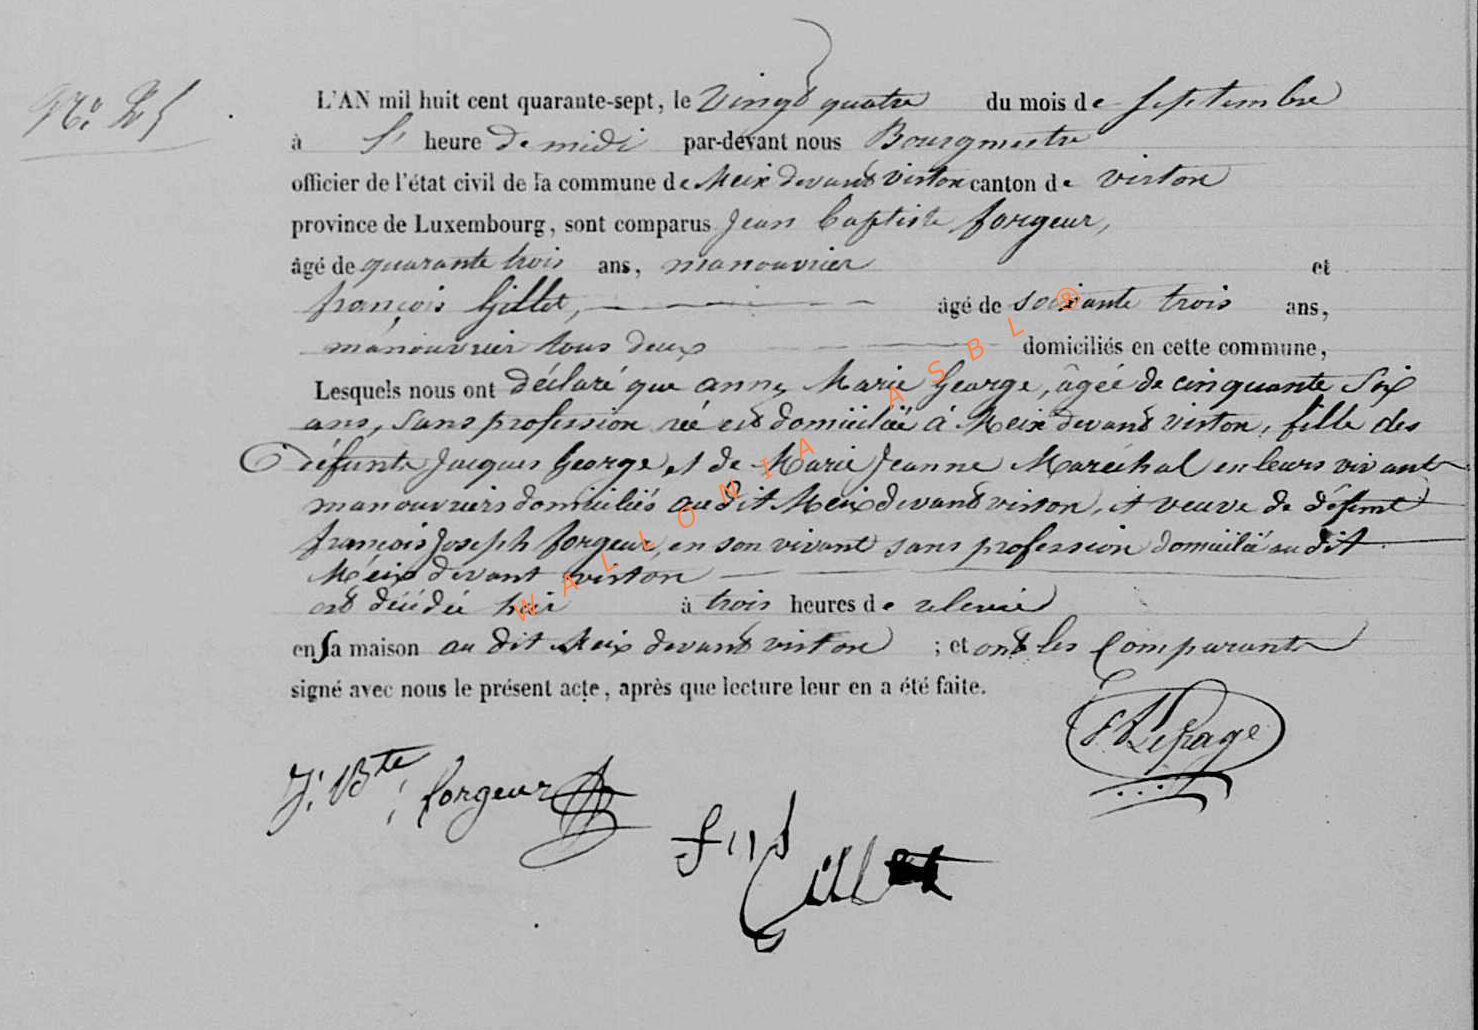 N.º 25
L'AN mil huit cent quarante-sept, le Vingt quatre du mois de Septembre
à heure de midi par-devant nous Bourgmestre
officier de l'état civil de la commune de Meix devant virton canton de virton
province de Luxembourg, sont comparus Jean baptiste forgeur,
âgé de quarante trois ans, manouvrier et
françois Gillet, âgé de soixante trois ans,
manouvrier tous deux domiciliés en cette commune,
Lesquels nous ont déclaré que anne Marie George, âgée de cinquante six
ans, sans profession née et domiciliée à Meix devant virton, fille des
défunts Jacques George et de Marie Jeanne Maréchal en leurs vivant
manouvriers domiciliés au dit Meix devant virton, et veuve de défunt
françois Joseph forgeur, en son vivant sans profession domicilié au dit
Meix devant virton
est décédée hier à trois heures de relevée
en sa maison au dit Meix devant virton ; et ont les Comparants
signé avec nous le présent acte, après que lecture leur en a été faite.
Lepage
J. Bte forgeur
Gillet
WALLONIA ASBL ®